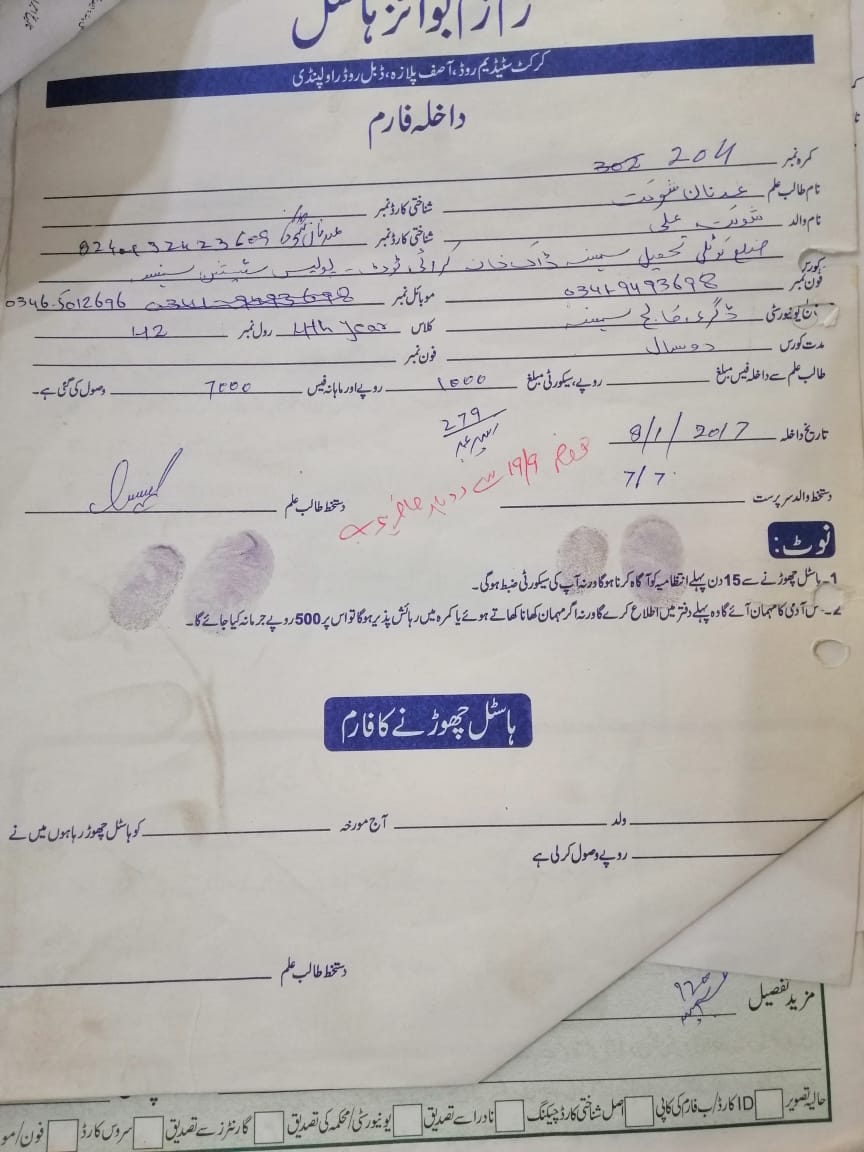 بوائز ہاسٹل
کرکٹ سٹیڈیم روڈ، آصف پلازہ، ڈبل روڈ راولپنڈی
داخلہ فارم
کمرہ نمبر 204 302
نام طالب علم عدنان شوکت شناختی کارڈ نمبر
نام والد شوکت علی شناختی کارڈ نمبر
ضلع کوٹلی تحصیل سہنسہ ڈاک خانہ پولیس سٹیشن سہنسہ
فون نمبر 0341-9493698 موبائل نمبر 0341-9493698 0346-5012696
یونیورسٹی ڈگری کالج سہنسہ کلاس 4th year رول نمبر 42
مدت کورس دو سال فون نمبر
طالب علم سے داخلہ فیس مبلغ روپے، سیکورٹی مبلغ 1000 روپے اور ماہانہ فیس 7000 وصول کی گئی ہے۔
279
تاریخ داخلہ 8/1/2017
19/9 سے دوبارہ حاضر ہوا
7/7
دستخط والد سرپرست دستخط طالب علم
نوٹ:
1۔ ہاسٹل چھوڑنے سے 15 دن پہلے انتظامیہ کو آگاہ کرنا ہوگا ورنہ آپ کی سیکورٹی ضبط ہوگی۔
2۔ جس آدمی کا مہمان آئے گا وہ پہلے دفتر میں اطلاع کرے گا ورنہ اگر مہمان کھانا کھاتے ہوئے یا کمرہ میں رہائش پذیر ہوگا تو اس پر 500 روپے جرمانہ کیا جائے گا۔
ہاسٹل چھوڑنے کا فارم
ولد آج مورخہ کو ہاسٹل چھوڑ رہا ہوں میں نے
روپے وصول کر لی ہے
دستخط طالب علم
مزید تفصیل
حالیہ تصویر ID کارڈ/ب فارم کی کاپی اصل شناختی کارڈ چیکنگ نادرا سے تصدیق یونیورسٹی/محکمہ کی تصدیق گارنٹرز سے تصدیق سروس کارڈ فون/مو